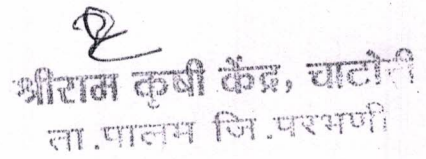 श्रीराम कृषी केंद्र, चाटोरी
ता.पालम जि.परभणी